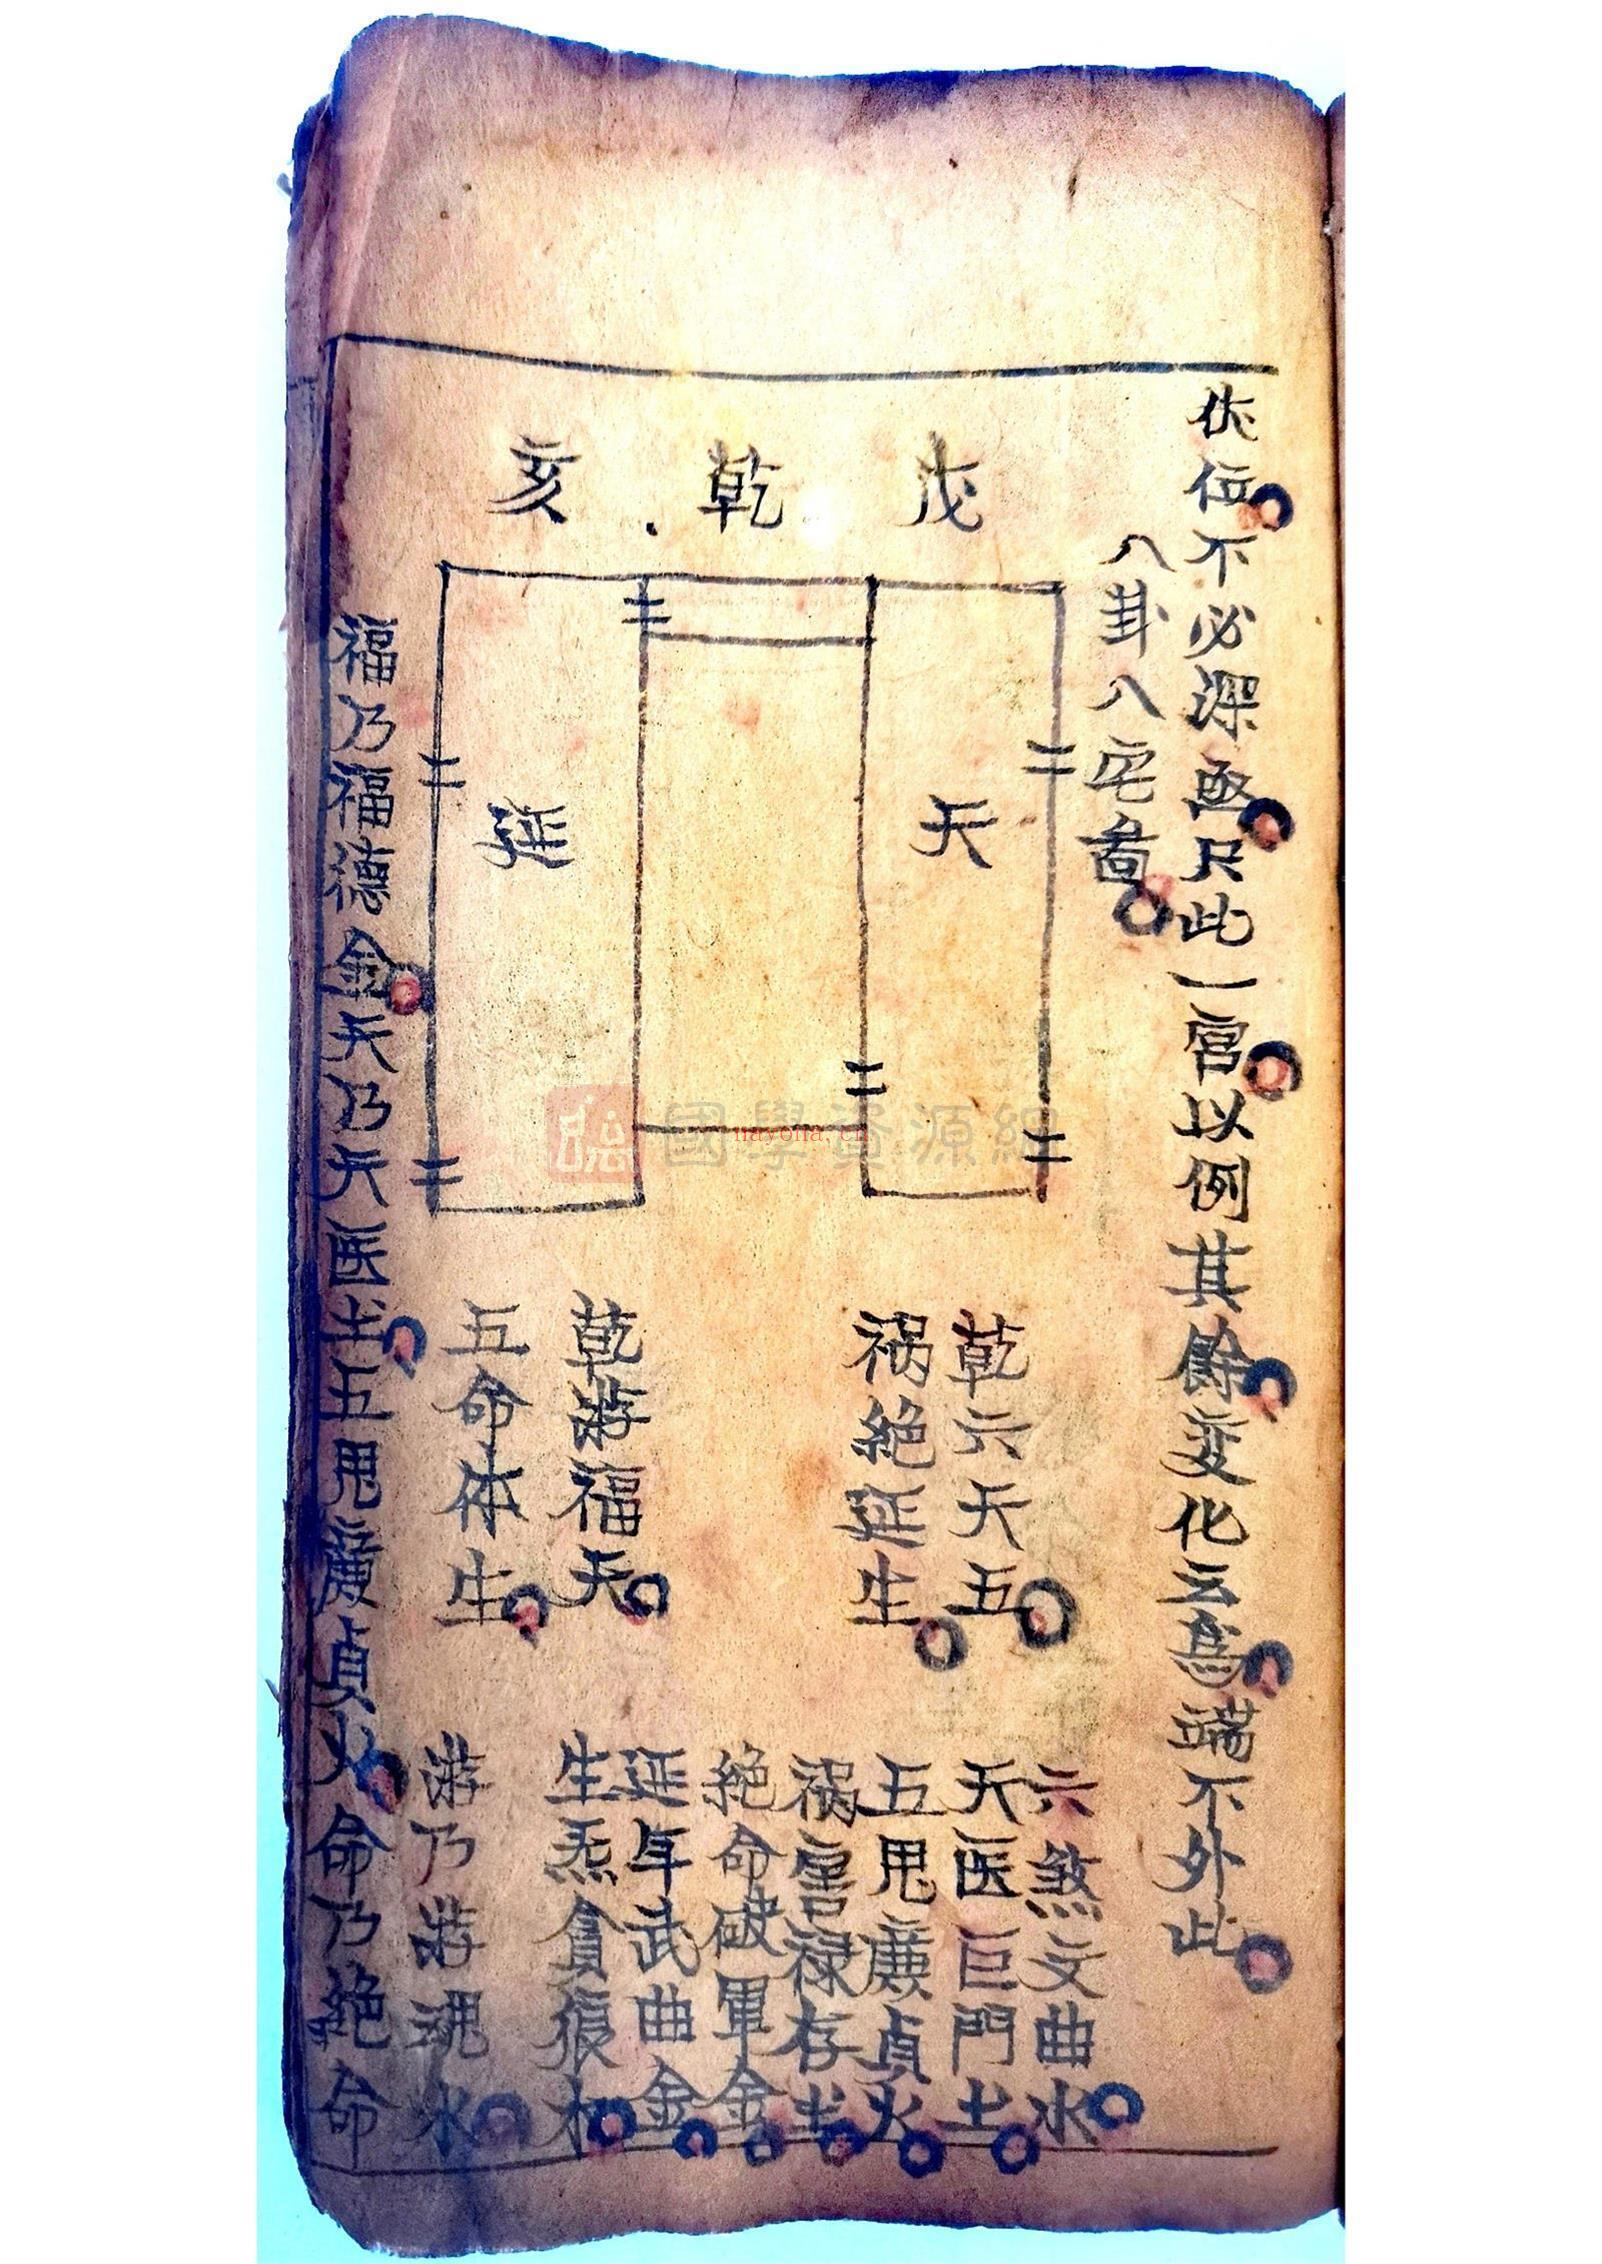 伏位不必深亟只此一宫以例其餘变化云為端不外此
八卦八宅啚
戊 乾 亥
天 延
乾六天五
祸絕延生
乾游福天
五命体生
六煞文曲水
天医巨門土
五鬼廉貞火
祸害禄存土
絕命破軍金
延年武曲金
生炁貪狼木
游乃游魂水
福乃福德金天乃天医土五鬼廉貞火命乃絕命
國學資源網
nayona.cn